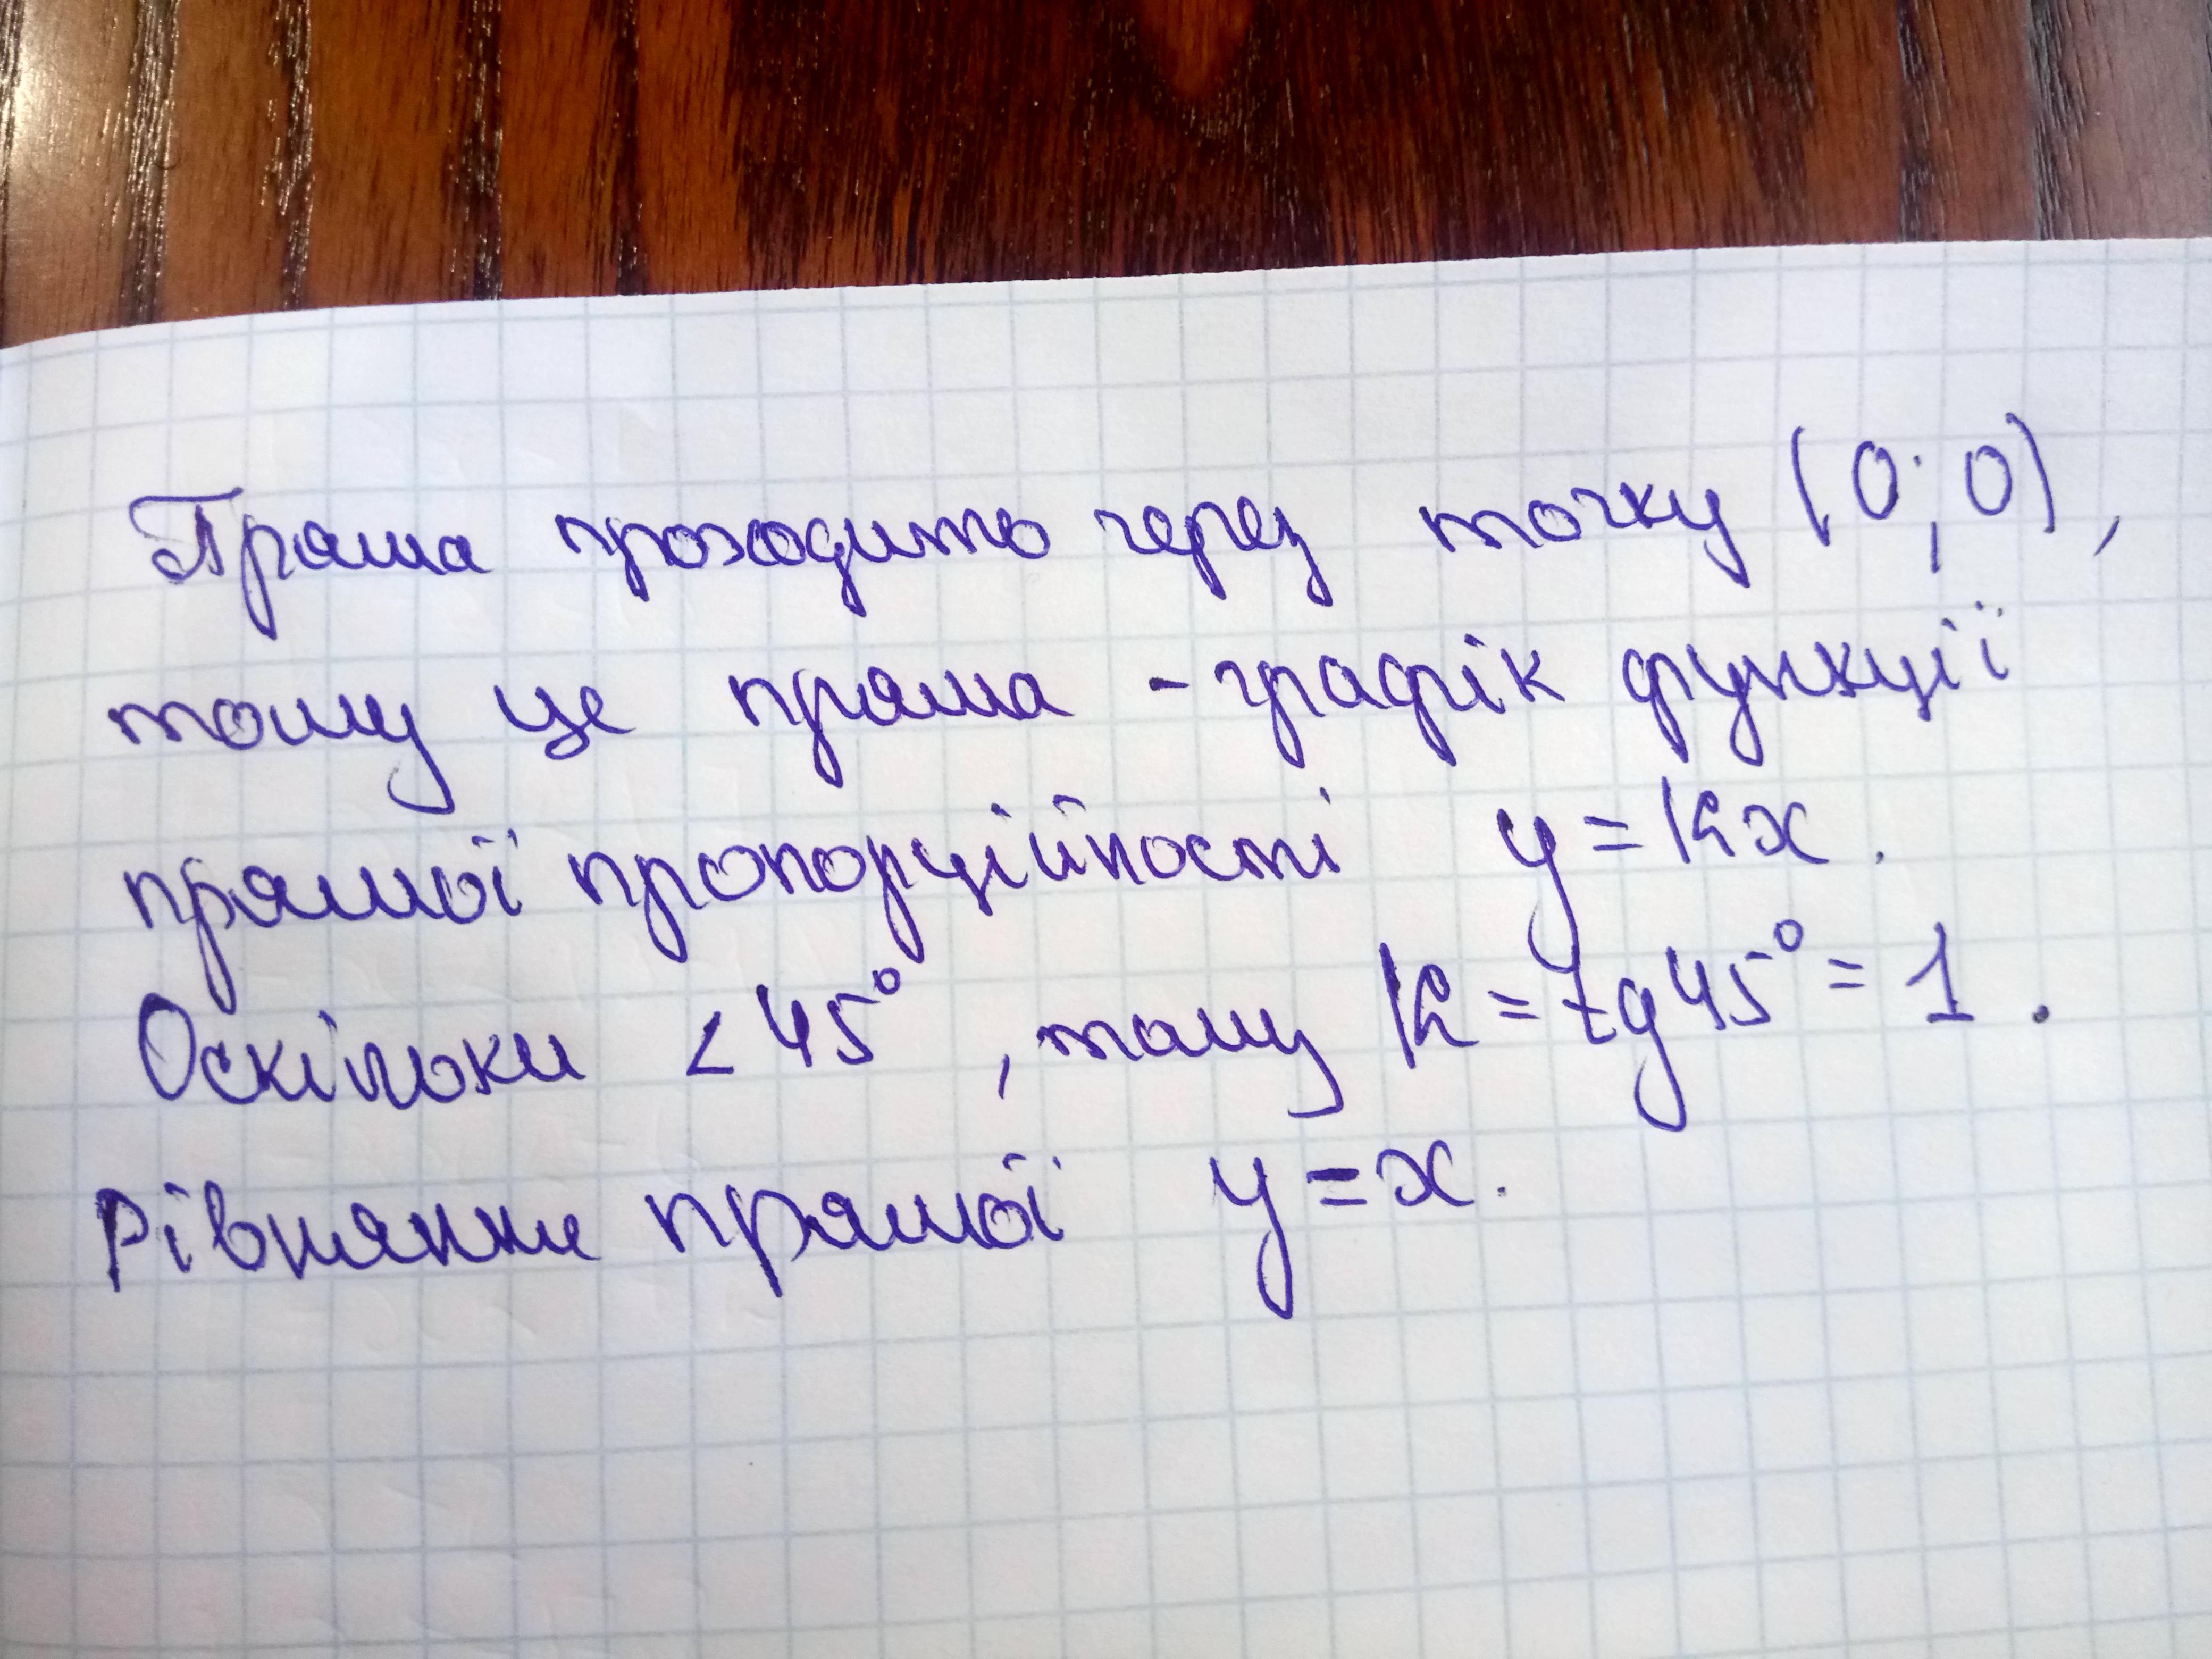 Пряма проходить через точку (0; 0),
тому це пряма - графік функції
прямої пропорційності y = kx.
Оскільки < 45°, тому k = tg 45° = 1.
Рівняння прямої y = x.